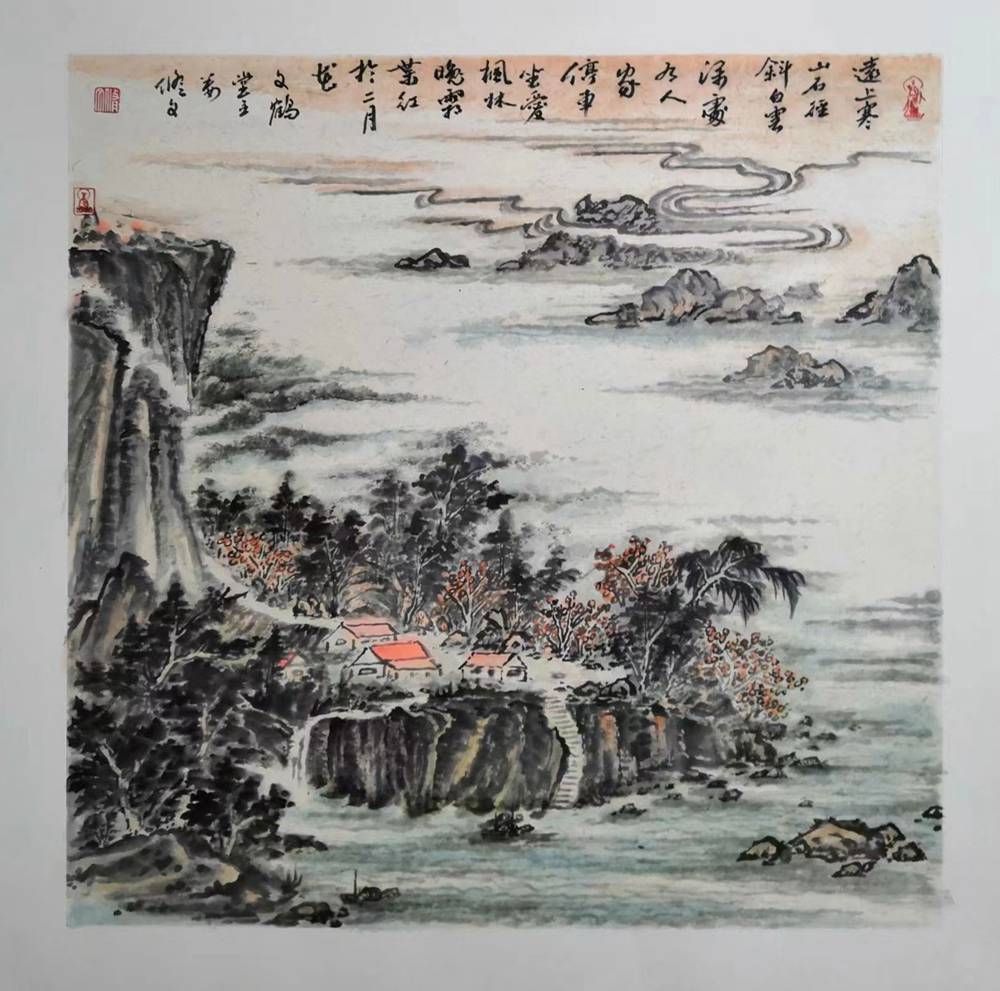 遠上寒
山石徑
斜白雲
深處
有人
家
停車
坐愛
楓林
晚霜
葉紅
於二月
花
文鶴
堂主
脩文